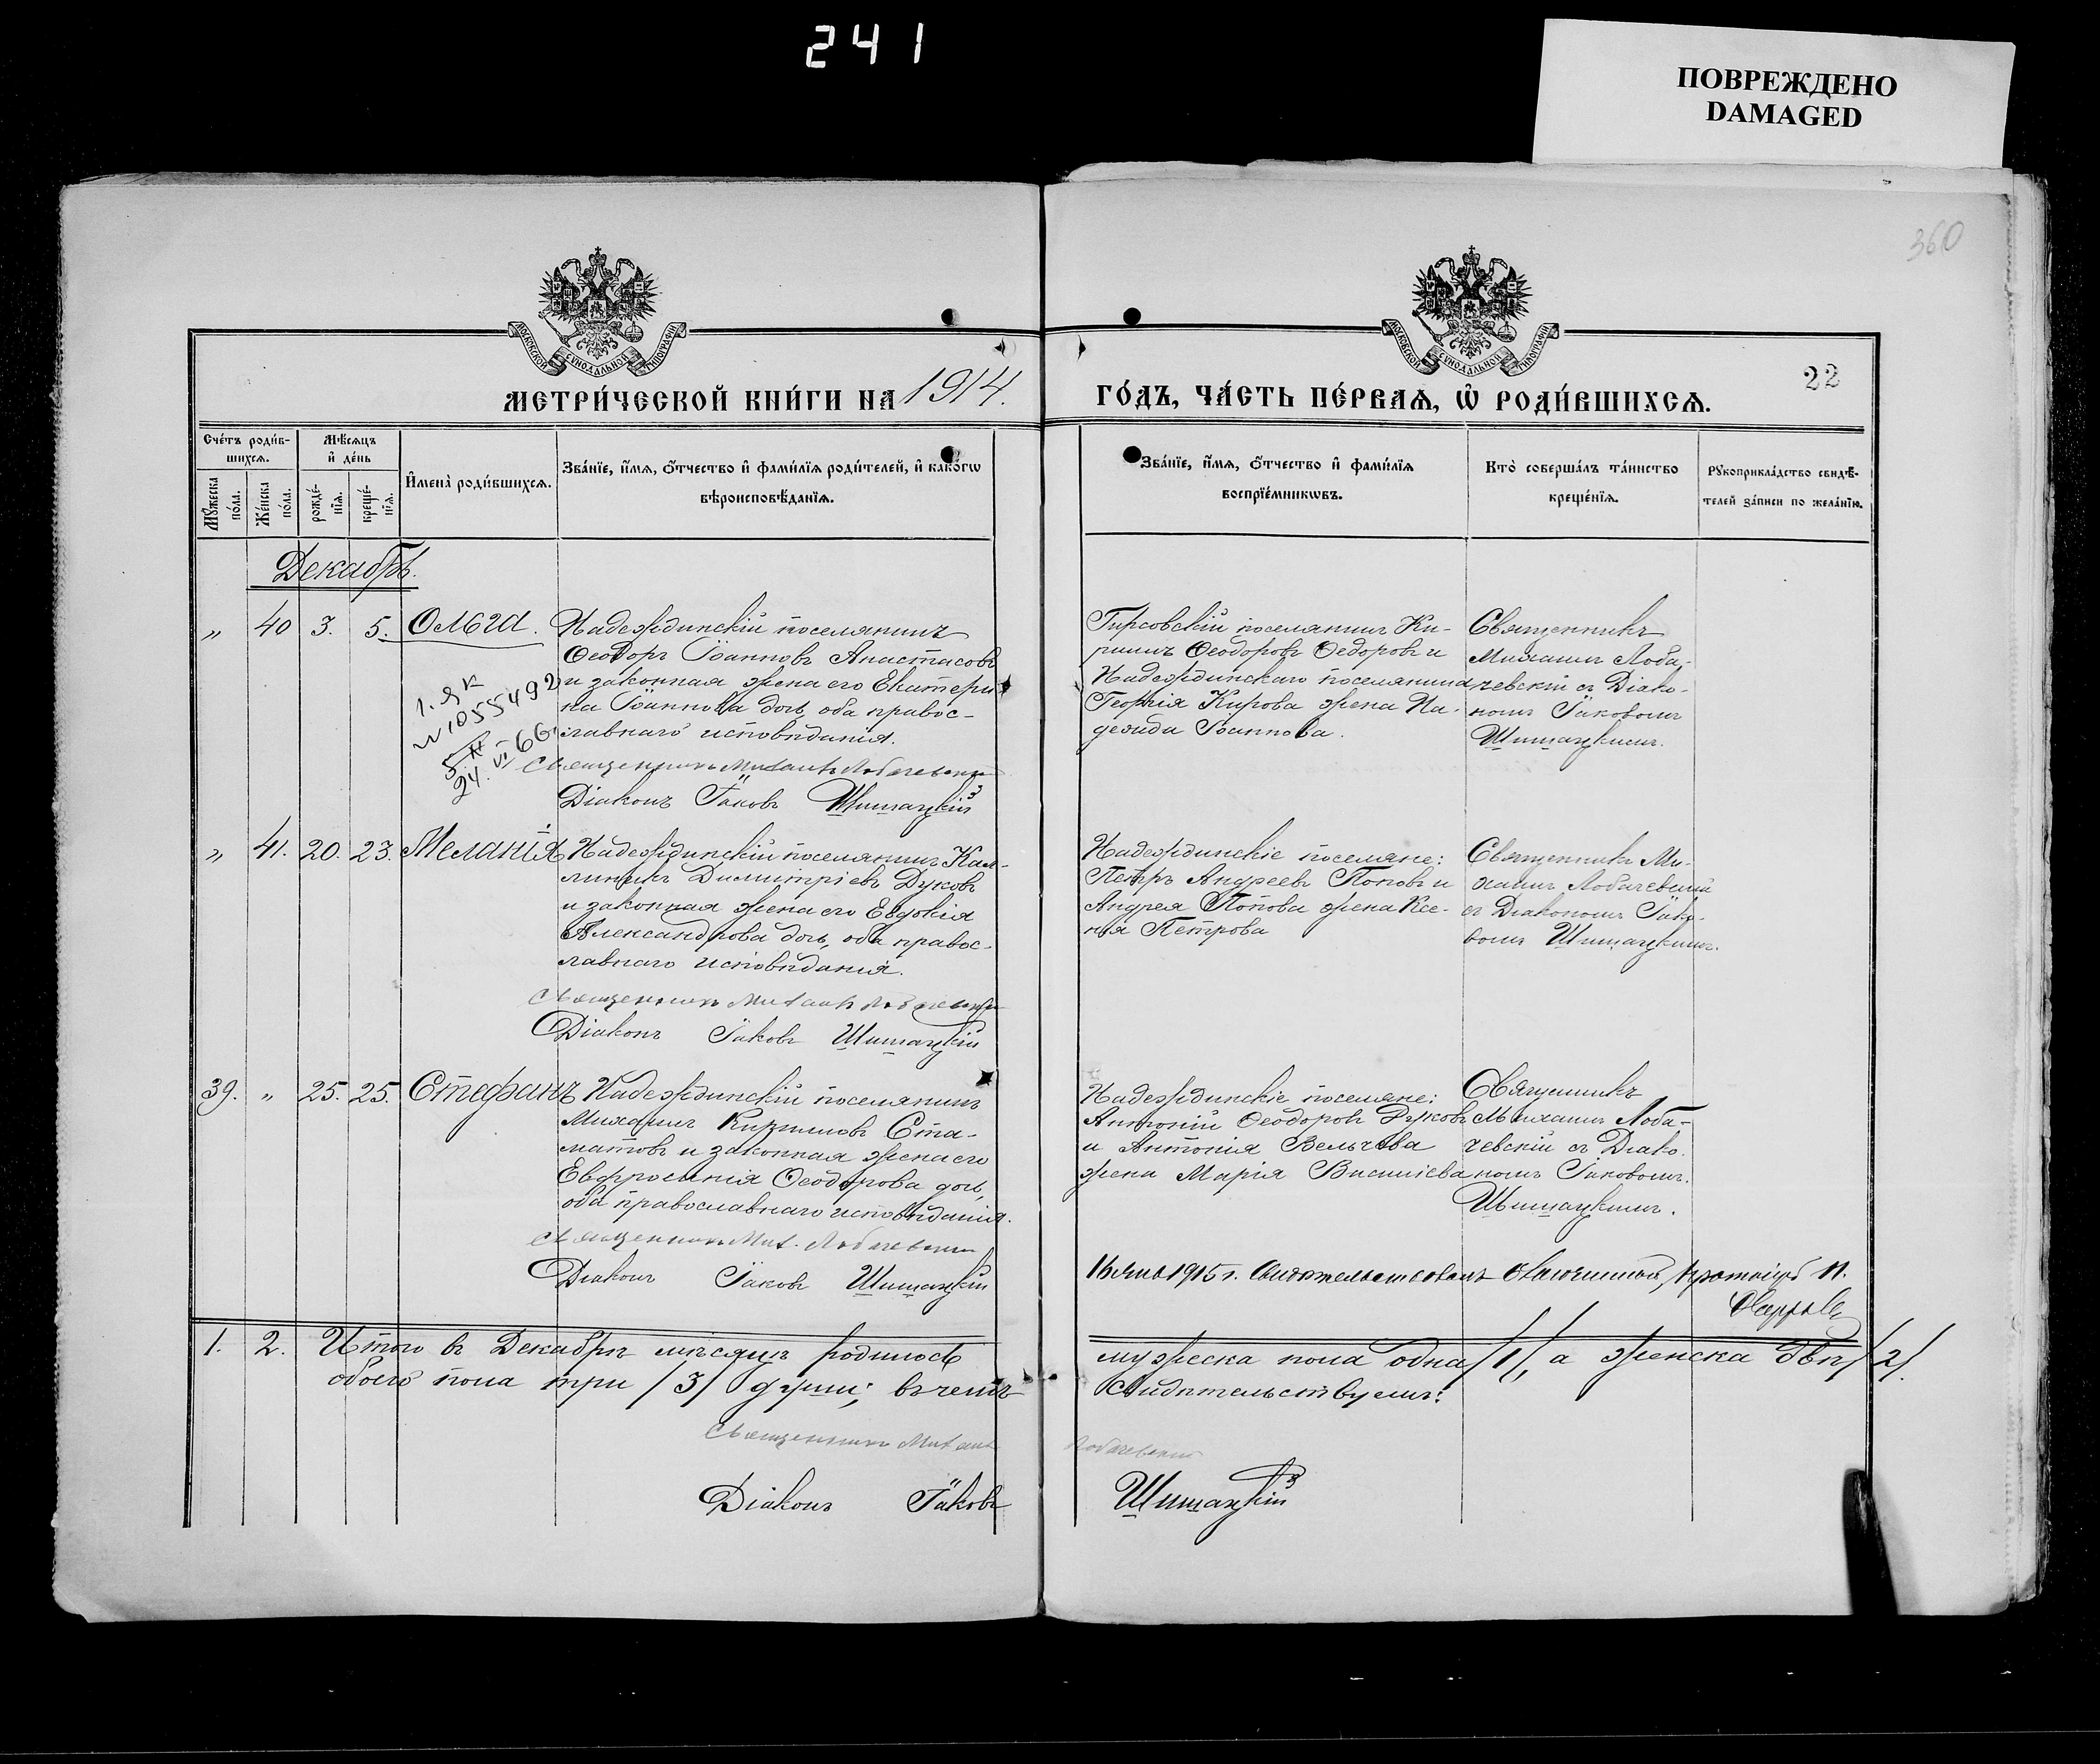 241
ПОВРЕЖДЕНО
DAMAGED
360
МОСКОВСКОЙ СѴНОДАЛЬНОЙ ТИПОГРАФІИ
МОСКОВСКОЙ СѴНОДАЛЬНОЙ ТИПОГРАФІИ
МЕТРИ́ЧЕСКОЙ КНИ́ГИ НА 1914.
ГО́ДЪ, ЧА́СТЬ ПЕ́РВАѦ, Ѡ҆ РОДИ́ВШИХСѦ.
22
Сче́тъ роди́в-
шихсѧ.
Мꙋ́жеска по́ла.
Же́нска по́ла.
Мѣ́сѧцъ
и҆ де́нь
рожде́-нїѧ.
креще́-нїѧ.
И҆мена̀ роди́вшихсѧ.
Зва́нїе, и҆́мѧ, ѻ҆́тчество и҆ фами́лїѧ роди́телей, и҆ како́гѡ
вѣроисповѣ́данїѧ.
Зва́нїе, и҆́мѧ, ѻ҆́тчество и҆ фами́лїѧ
воспрїе́мникѡвъ.
Кто̀ соверша́лъ та́инство
креще́нїѧ.
Рꙋкоприкла́дство свидѣ́-
телей за́писи по жела́нїю.
Декабрь.
„ 40 3. 5. Ольга.
Надеждинскій поселянинъ
Ѳеодоръ Іоанновъ Анастасовъ
и законная жена его Екатери-
на Іоаннова дочь, оба правос-
лавнаго исповѣданія.
Священникъ Михаилъ Лобачевскій
Діаконъ Іаковъ Шишацкій
1055492
24. VI 66.
Гирсовскій поселянинъ Ки-
риллъ Ѳеодоровъ Ѳедоровъ и
Надеждинскаго поселянина
Георгія Кирова жена На-
дежда Іоаннова.
Священникъ
Михаилъ Лоба-
чевскій съ Діако-
номъ Іаковомъ
Шишацкимъ.
„ 41. 20. 23. Меланія
Надеждинскій поселянинъ Кал-
линикъ Димитріевъ Дуковъ
и законная жена его Евдокія
Александрова дочь, оба правос-
лавнаго исповѣданія.
Священникъ Михаилъ Лобачевскій
Діаконъ Іаковъ Шишацкій
Надеждинскіе поселяне:
Петръ Андреевъ Поповъ и
Андрея Попова жена Ксе-
нія Петрова
Священникъ Ми-
хаилъ Лобачевскій
съ Діакономъ Іако-
вомъ Шишацкимъ.
39. „ 25. 25. Стефанъ
Надеждинскій поселянинъ
Михаилъ Кирилловъ Ста-
матовъ и законная жена его
Евфросинія Ѳеодорова дочь,
оба православнаго исповѣданія.
Священникъ Мих. Лобачевскій
Діаконъ Іаковъ Шишацкій
Надеждинскіе поселяне:
Антоній Ѳеодоровъ Дуковъ
и Антонія Вельчева
жена Марія Василіева
Священникъ
Михаилъ Лоба-
чевскій съ Діако-
номъ Іаковомъ
Шишацкимъ.
1915 г. Свидѣтельствовалъ Благочинный,
1. 2. Итого въ Декабрѣ мѣсяцѣ родилось
обоего пола три /3/ души; въ чемъ
мужеска пола одна /1/, а женска двѣ /2/.
свидѣтельствуемъ:
Священникъ Михаилъ Лобачевскій
Діаконъ Іаковъ Шишацкій